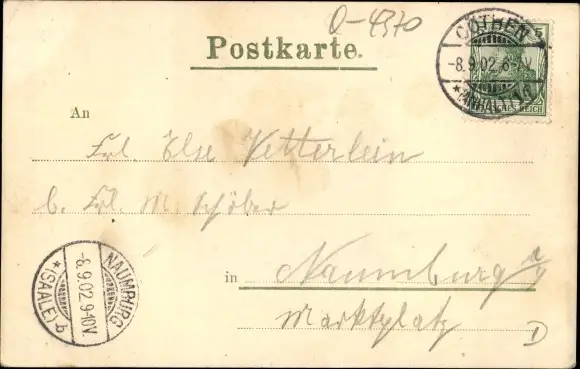 Q-4370
Postkarte.
CÖTHEN
-8.9.02.6-
*(ANHALT)1d
5
REICH
An
Frl. Else Vetterlein
b. Frl. M. Schöber
in Naumburg a/
Marktplatz
D
NAUMBURG
-8.9.02.9-10V.
*(SAALE) b